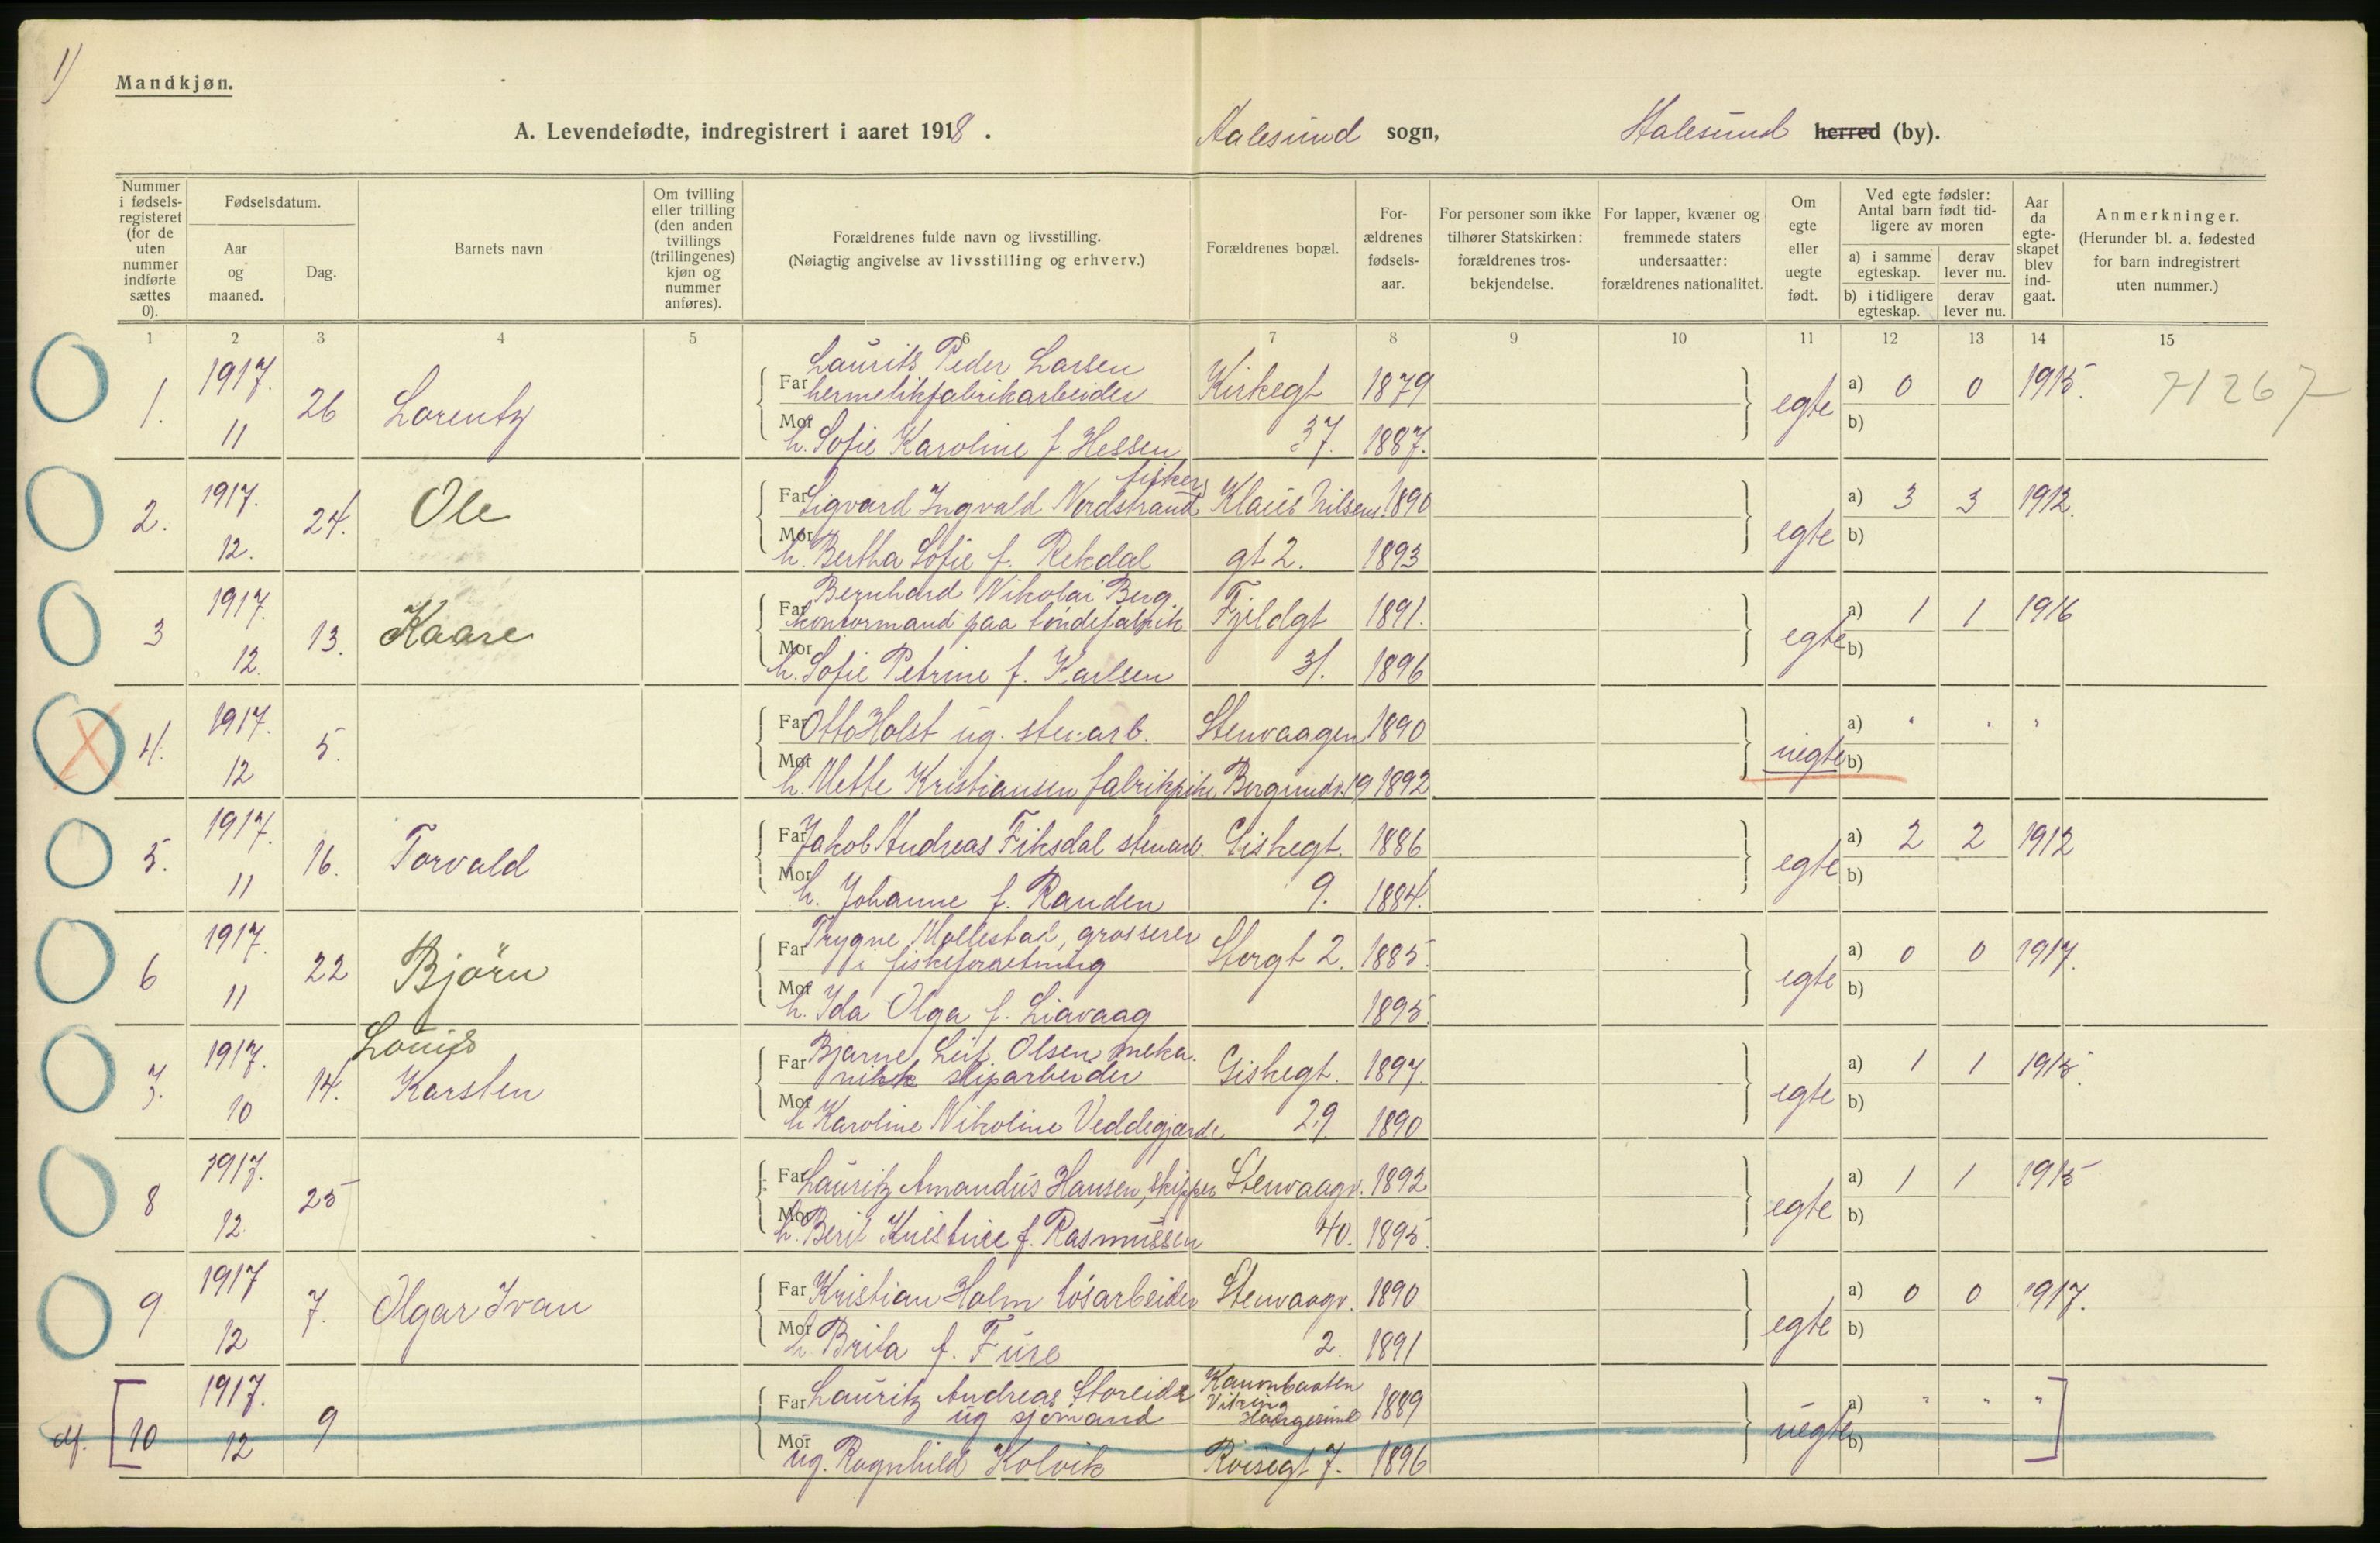 1)
Mandkjøn.
A. Levendefødte, indregistrert i aaret 1918. Aalesund sogn, Aalesund herred (by).
Nummer i fødselsregisteret (for de uten nummer indførte sættes 0).
Fødselsdatum.
Aar og maaned.
Dag.
Barnets navn
Om tvilling eller trilling (den anden tvillings (trillingenes) kjøn og nummer anføres).
Forældrenes fulde navn og livsstilling.
(Nøiagtig angivelse av livsstilling og erhverv.)
Forældrenes bopæl.
Forældrenes fødselsaar.
For personer som ikke tilhører Statskirken: forældrenes trosbekjendelse.
For lapper, kvæner og fremmede staters undersaatter: forældrenes nationalitet.
Om egte eller uegte født.
Ved egte fødsler: Antal barn født tidligere av moren
a) i samme egteskap.
derav lever nu.
b) i tidligere egteskap.
derav lever nu.
Aar da egteskapet blev indgaat.
Anmerkninger.
(Herunder bl. a. fødested for barn indregistrert uten nummer.)
1 2 3 4 5 6 7 8 9 10 11 12 13 14 15
Laurits Peder Larsen
1. 1917. 26 Lorentz Far hermetikfabrikarbeider Kirkegt 1879 egte a) 0 0 1915. 71267
11 Mor h. Sofie Karoline f. Hessen 37. 1887. b)
fisker
2. 1917. 24. Ole Far Sigvard Ingvald Nordstrand Klaus Nilsens 1890 egte a) 3 3 1912.
12. Mor h. Bertha Sofie f. Rekdal gt 2. 1893 b)
Bernhard Nikolai Berg
3 1917. 13. Kaare Far kontormand paa töndefabrik Fjeldgt 1891. egte a) 1 1 1916
12. Mor h. Sofie Petrine f. Karlsen 31. 1896 b)
4. 1917. 5. Far Otto Holst ug. stu:arb. Stenvaagen 1890 uegte a) " " "
12 Mor h. Mette Kristiansen fabrikpike 19 1892. b)
5. 1917. 16. Torvald Far Jakob Andreas Fiksdal stuarb. Giskegt. 1886 egte a) 2 2 1912
11 Mor h. Johanne f. Randen 9. 1884. b)
Trygve Mollestad, grosserer
6 1917. 22 Björn Far i fiskeforretning Storgt 2. 1885. egte a) 0 0 1917.
11 Mor h. Ida Olga f. Liavaag 1895. b)
Louis Bjarne Leif Olsen, meka-
7. 1917. 14. Karsten Far nisk sliparbeider Giskegt. 1897. egte a) 1 1 1915.
10 Mor h Karoline Nikoline Veddegjærde 29. 1890 b)
8 1917. 25 Far Lauritz Amandus Hansen, skipper Stenvaagv. 1892 egte a) 1 1 1915
12. Mor h. Berit Kristine f. Rasmussen 40. 1895. b)
9 1917 7. Olgar Ivan Far Kristian Holm lösarbeider Stenvaagv. 1890 egte a) 0 0 1917.
12 Mor h Brita f. Fure 2. 1891 b)
1917. Lauritz Andreas Storeide Kanonbaaten
10 9 Far ug sjömand Haugesund 1889 uegte a) " " "
12 Mor ug. Ragnhild Kolvik 7. 1896 b)